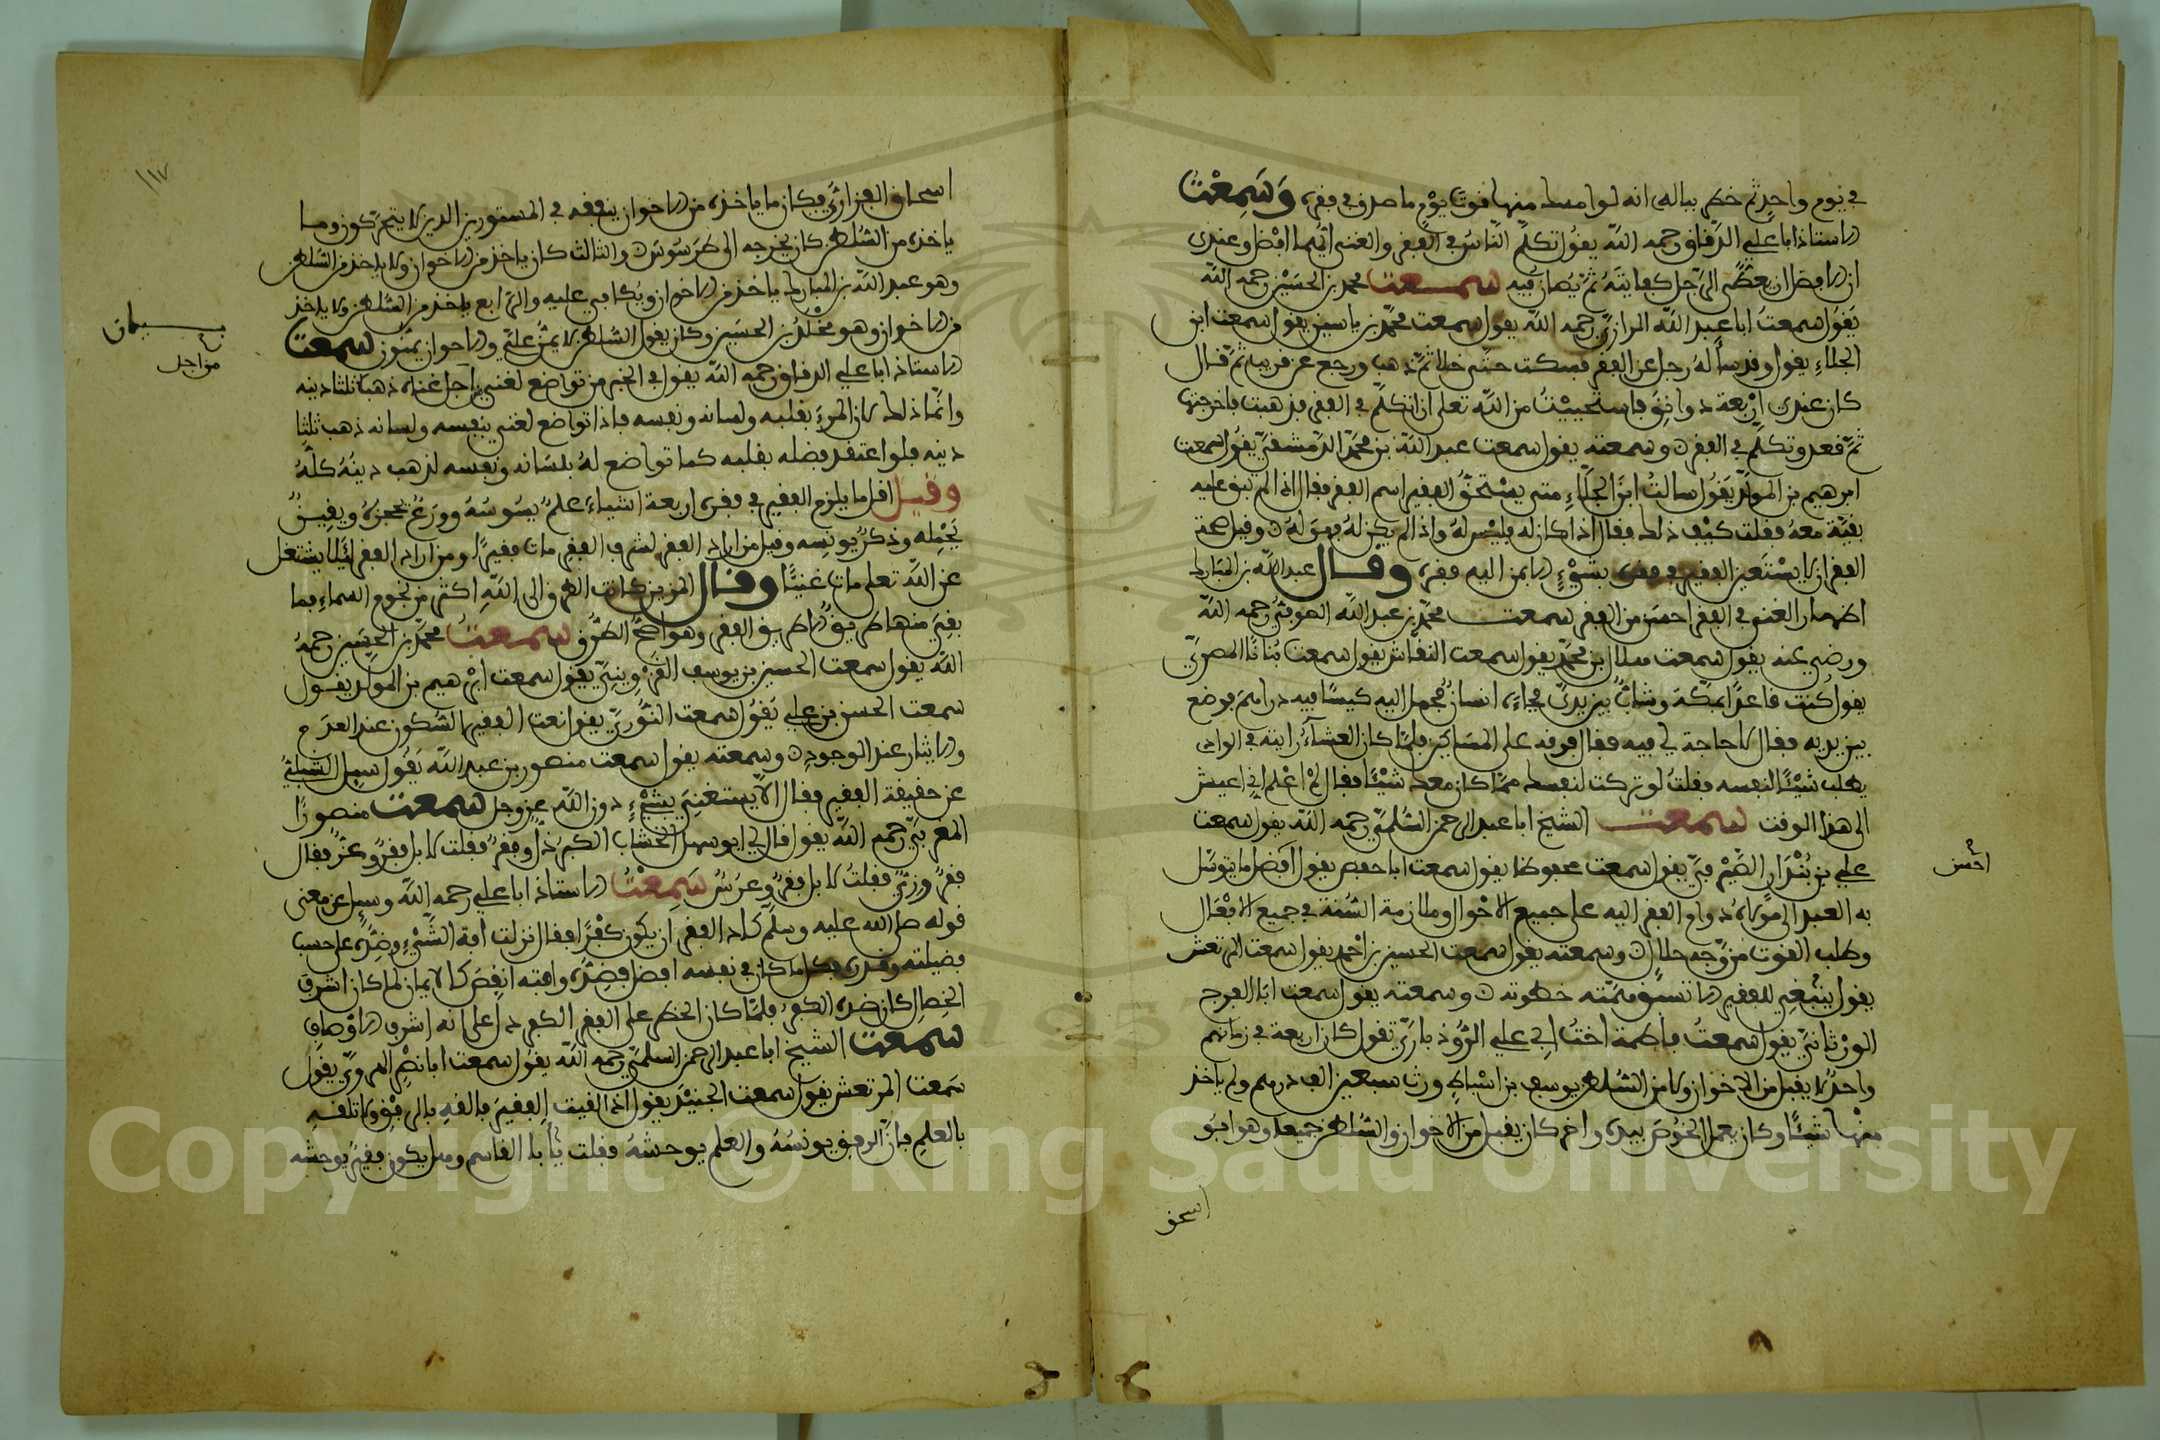 في يوم واحد ثم خطر بباله انه لو امسك منها قوت يوم ما صدق في فقره وسمعت
الاستاذ ابا علي الدقاق رحمه الله يقول تكلم الناس في الفقر والغنى ايهما افضل وعندي
ان الافضل ان يعطى الرجل كفايته ثم يصان فيه سمعت محمد بن الحسين رحمه الله
يقول سمعت ابا عبد الله الرازي رحمه الله يقول سمعت محمد بن ياسين يقول سمعت ابن
الجلاء يقول وقد سأله رجل عن الفقر فسكت حتى خلا ثم ذهب ورجع عن قريب ثم قال
كان عندي اربعة دوانق فاستحييت من الله تعلى ان اتكلم في الفقر فذهبت فاخرجتها
ثم قعد وتكلم في الفقر وسمعته يقول سمعت عبد الله بن محمد الدمشقي يقول سمعت
ابرهيم بن المولد يقول سالت ابن الجلاء متى يستحق الفقير اسم الفقر فقال اذا لم يبق عليه
بقية معه فقلت كيف ذلك فقال اذا كان له فليس له واذا لم يكن له فهو له وقيل صحة
الفقر ان لا يستغني الفقير في فقره بشيء الا بمن اليه فقره وقال عبد الله بن المبارك
اظهار الغنى في الفقر احسن من الفقر سمعت محمد بن عبد الله الصوفي رحمه الله
ورضي عنه يقول سمعت هلال بن محمد يقول سمعت النقاش يقول سمعت بنانا المصري
يقول كنت قاعدا بمكة وشاب بين يدي فجاءه انسان فحمل اليه كيسا فيه دراهم فوضع
بين يديه فقال لا حاجة لي فيه فقال فرقه على المساكين فلما كان العشاء رايته في الوادي
يطلب شيئا لنفسه فقلت لو تركت لنفسك مما كان معك شيئا فقال لم اعلم اني اعيش
الى هذا الوقت سمعت الشيخ ابا عبد الرحمن السلمي رحمه الله يقول سمعت
علي بن بندار الصيرفي يقول سمعت محفوظا يقول سمعت ابا حفص يقول افضل ما يتوسل
احسن
به العبد الى مولاه دوام الفقر اليه على جميع الاحوال وملازمة السنة في جميع الافعال
وطلب القوت من وجه حلال وسمعته يقول سمعت الحسين بن احمد يقول سمعت المرتعش
يقول ينبغي للفقير الا تسبق همته خطوته وسمعته يقول سمعت ابا الفرج
الورثاني يقول سمعت فاطمة اخت ابي علي الروذباري تقول كان اربعة في زمانهم
واحد لا يقبل من الاخوان ولا من السلطان يوسف بن اسباط ورث سبعين الف درهم ولم ياخذ
منها شيئا وكان يعمل الخوص بيده واخر كان يقبل من الاخوان والسلطان جميعا وهو ابو
اسحق
١١٧
اسحاق الفزاري فكان ما ياخذه من الاخوان ينفقه في المستورين الذين لا يتحركون وما
ياخذه من السلطان كان يخرجه الى طرسوس والثالث كان ياخذ من الاخوان ولا ياخذ من السلطان
وهو عبد الله بن المبارك ياخذ من الاخوان ويكافي عليه والرابع ياخذ من السلطان ولا ياخذ
من الاخوان وهو مخلد بن الحسين وكان يقول السلطان لا يمن علي والاخوان يمنون سمعت
الاستاذ ابا علي الدقاق رحمه الله يقول في الخبر من تواضع لغني لاجل غناه ذهب ثلثا دينه
من اجل
وانما ذلك لان المرء بقلبه ولسانه ونفسه فاذا تواضع لغني بنفسه ولسانه ذهب ثلثا
دينه فلو اعتقد فضله بقلبه كما تواضع له بلسانه ونفسه لذهب دينه كله
وقيل اقل ما يلزم الفقير في فقره اربعة اشياء علم يسوسه وورع يحجزه ويقين
يحمله وذكر يونسه وقيل من اراد الفقر لشرف الفقر مات فقيرا ومن اراد الفقر لئلا يشتغل
عن الله تعلى مات غنيا وقال المزين كانت الطرق الى الله اكثر من نجوم السماء فما
بقي منها طريق الا طريق الفقر وهو اصح الطرق سمعت محمد بن الحسين رحمه
الله يقول سمعت الحسين بن يوسف القزويني يقول سمعت ابرهيم بن المولد يقول
سمعت الحسن بن علي يقول سمعت النوري يقول نعت الفقير السكون عند العدم
والايثار عند الوجود وسمعته يقول سمعت منصور بن عبد الله يقول سيل الشبلي
عن حقيقة الفقير فقال الا يستغني بشيء دون الله عز وجل سمعت منصورا
المغربي رحمه الله يقول قال لي ابو سهل الخشاب الكبير ذل وفقر فقلت لا بل فقر وعز فقال
فقر وثرى فقلت لا بل فقر وعرش سمعت الاستاذ ابا علي رحمه الله وسيل عن معنى
قوله صلى الله عليه وسلم كاد الفقر ان يكون كفرا فقال نزلت افة الشيء وضره على حسب
فضيلته وقدره فكل ما كان في نفسه افضل فضره وافته انقص كالايمان لما كان اشرف
الخصال كان ضده الكفر فلما كان الخطر على الفقر الكفر دل على انه اشرف الاوصاف
سمعت الشيخ ابا عبد الرحمن السلمي رحمه الله يقول سمعت ابا نصر الهروي يقول
سمعت المرتعش يقول سمعت الجنيد يقول اذا لقيت الفقير فالقه بالرفق ولا تلقه
بالعلم فان الرفق يونسه والعلم يوحشه فقلت يا ابا القاسم وهل يكون فقير يوحشه
Copyright © King Saud University